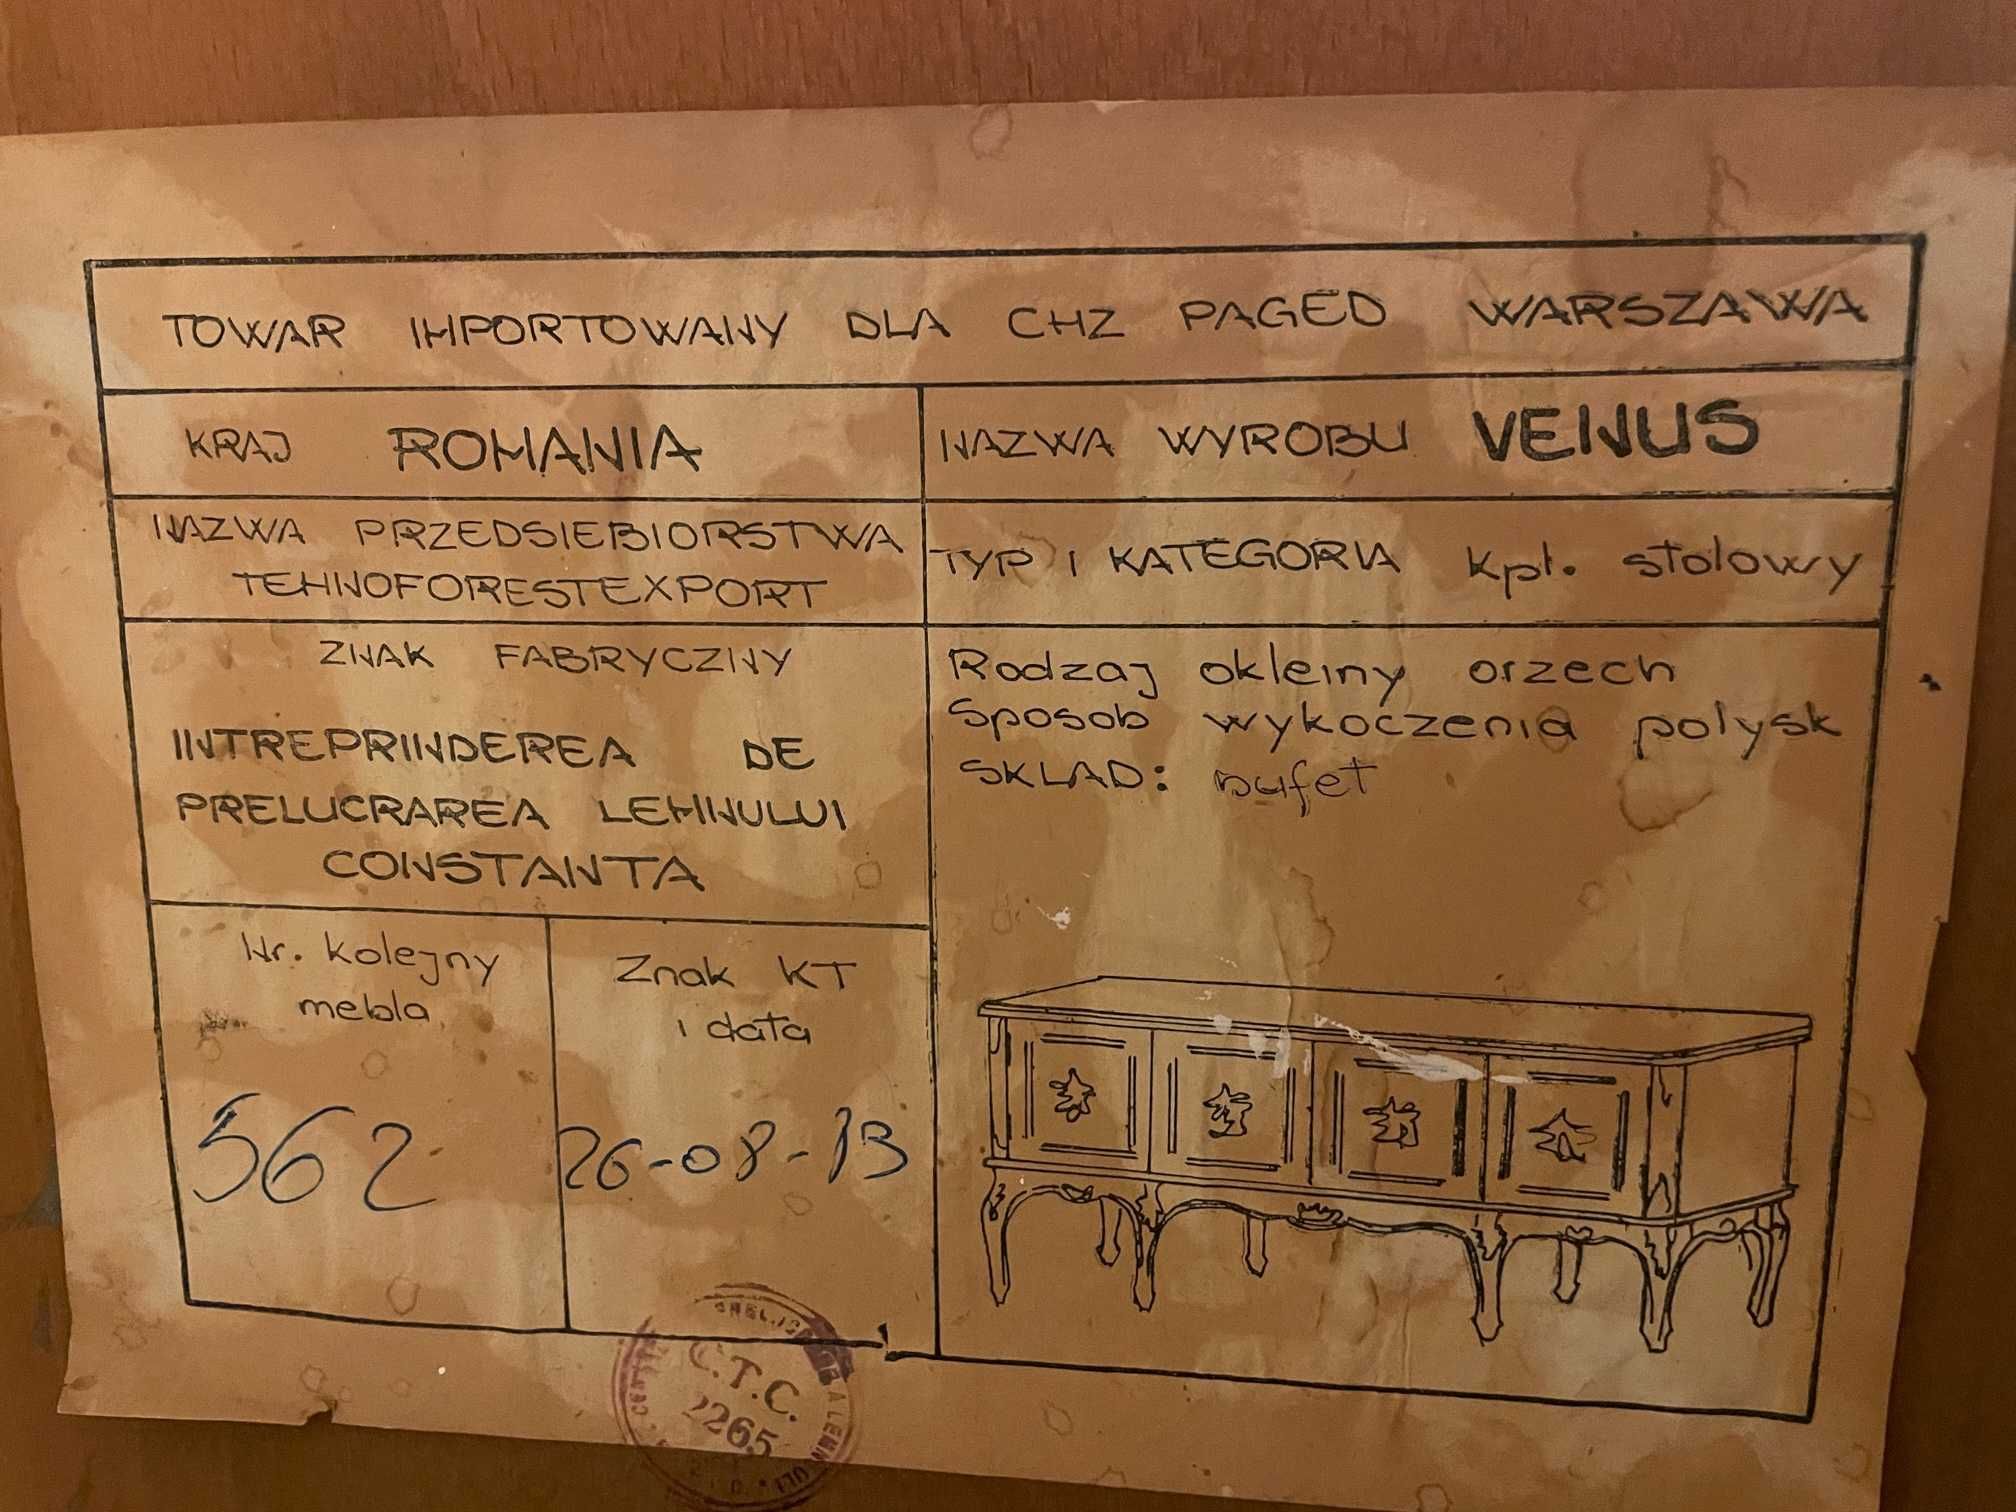 TOWAR IMPORTOWANY DLA CHZ PAGED WARSZAWA
KRAJ ROMANIA
NAZWA WYROBU VENUS
NAZWA PRZEDSIEBIORSTWA
TEHNOFORESTEXPORT
TYP I KATEGORIA Kpł. stolowy
ZNAK FABRYCZNY
INTREPRINDEREA DE
PRELUCRAREA LEMNULUI
CONSTANTA
Rodzaj okleiny orzech
Sposob wykoczenia polysk
SKLAD: bufet
Nr. kolejny
mebla
562
Znak KT
i data
26-08-83
C.T.C.
2265